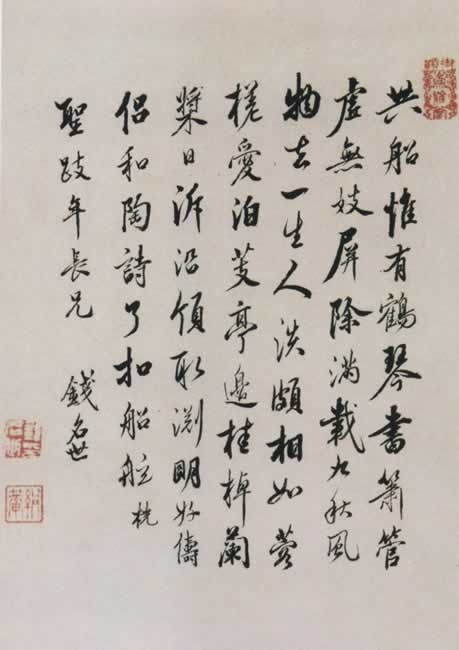 共船惟有鶴琴書簫管
虛無妓屏除滿載九秋風
物去一生人淡頗相如蓼
槎愛泊芰亭邊桂棹蘭
槳日泝沿領取淵明好儔
侶和陶詩了扣船舷
聖跂年長兄
錢名世